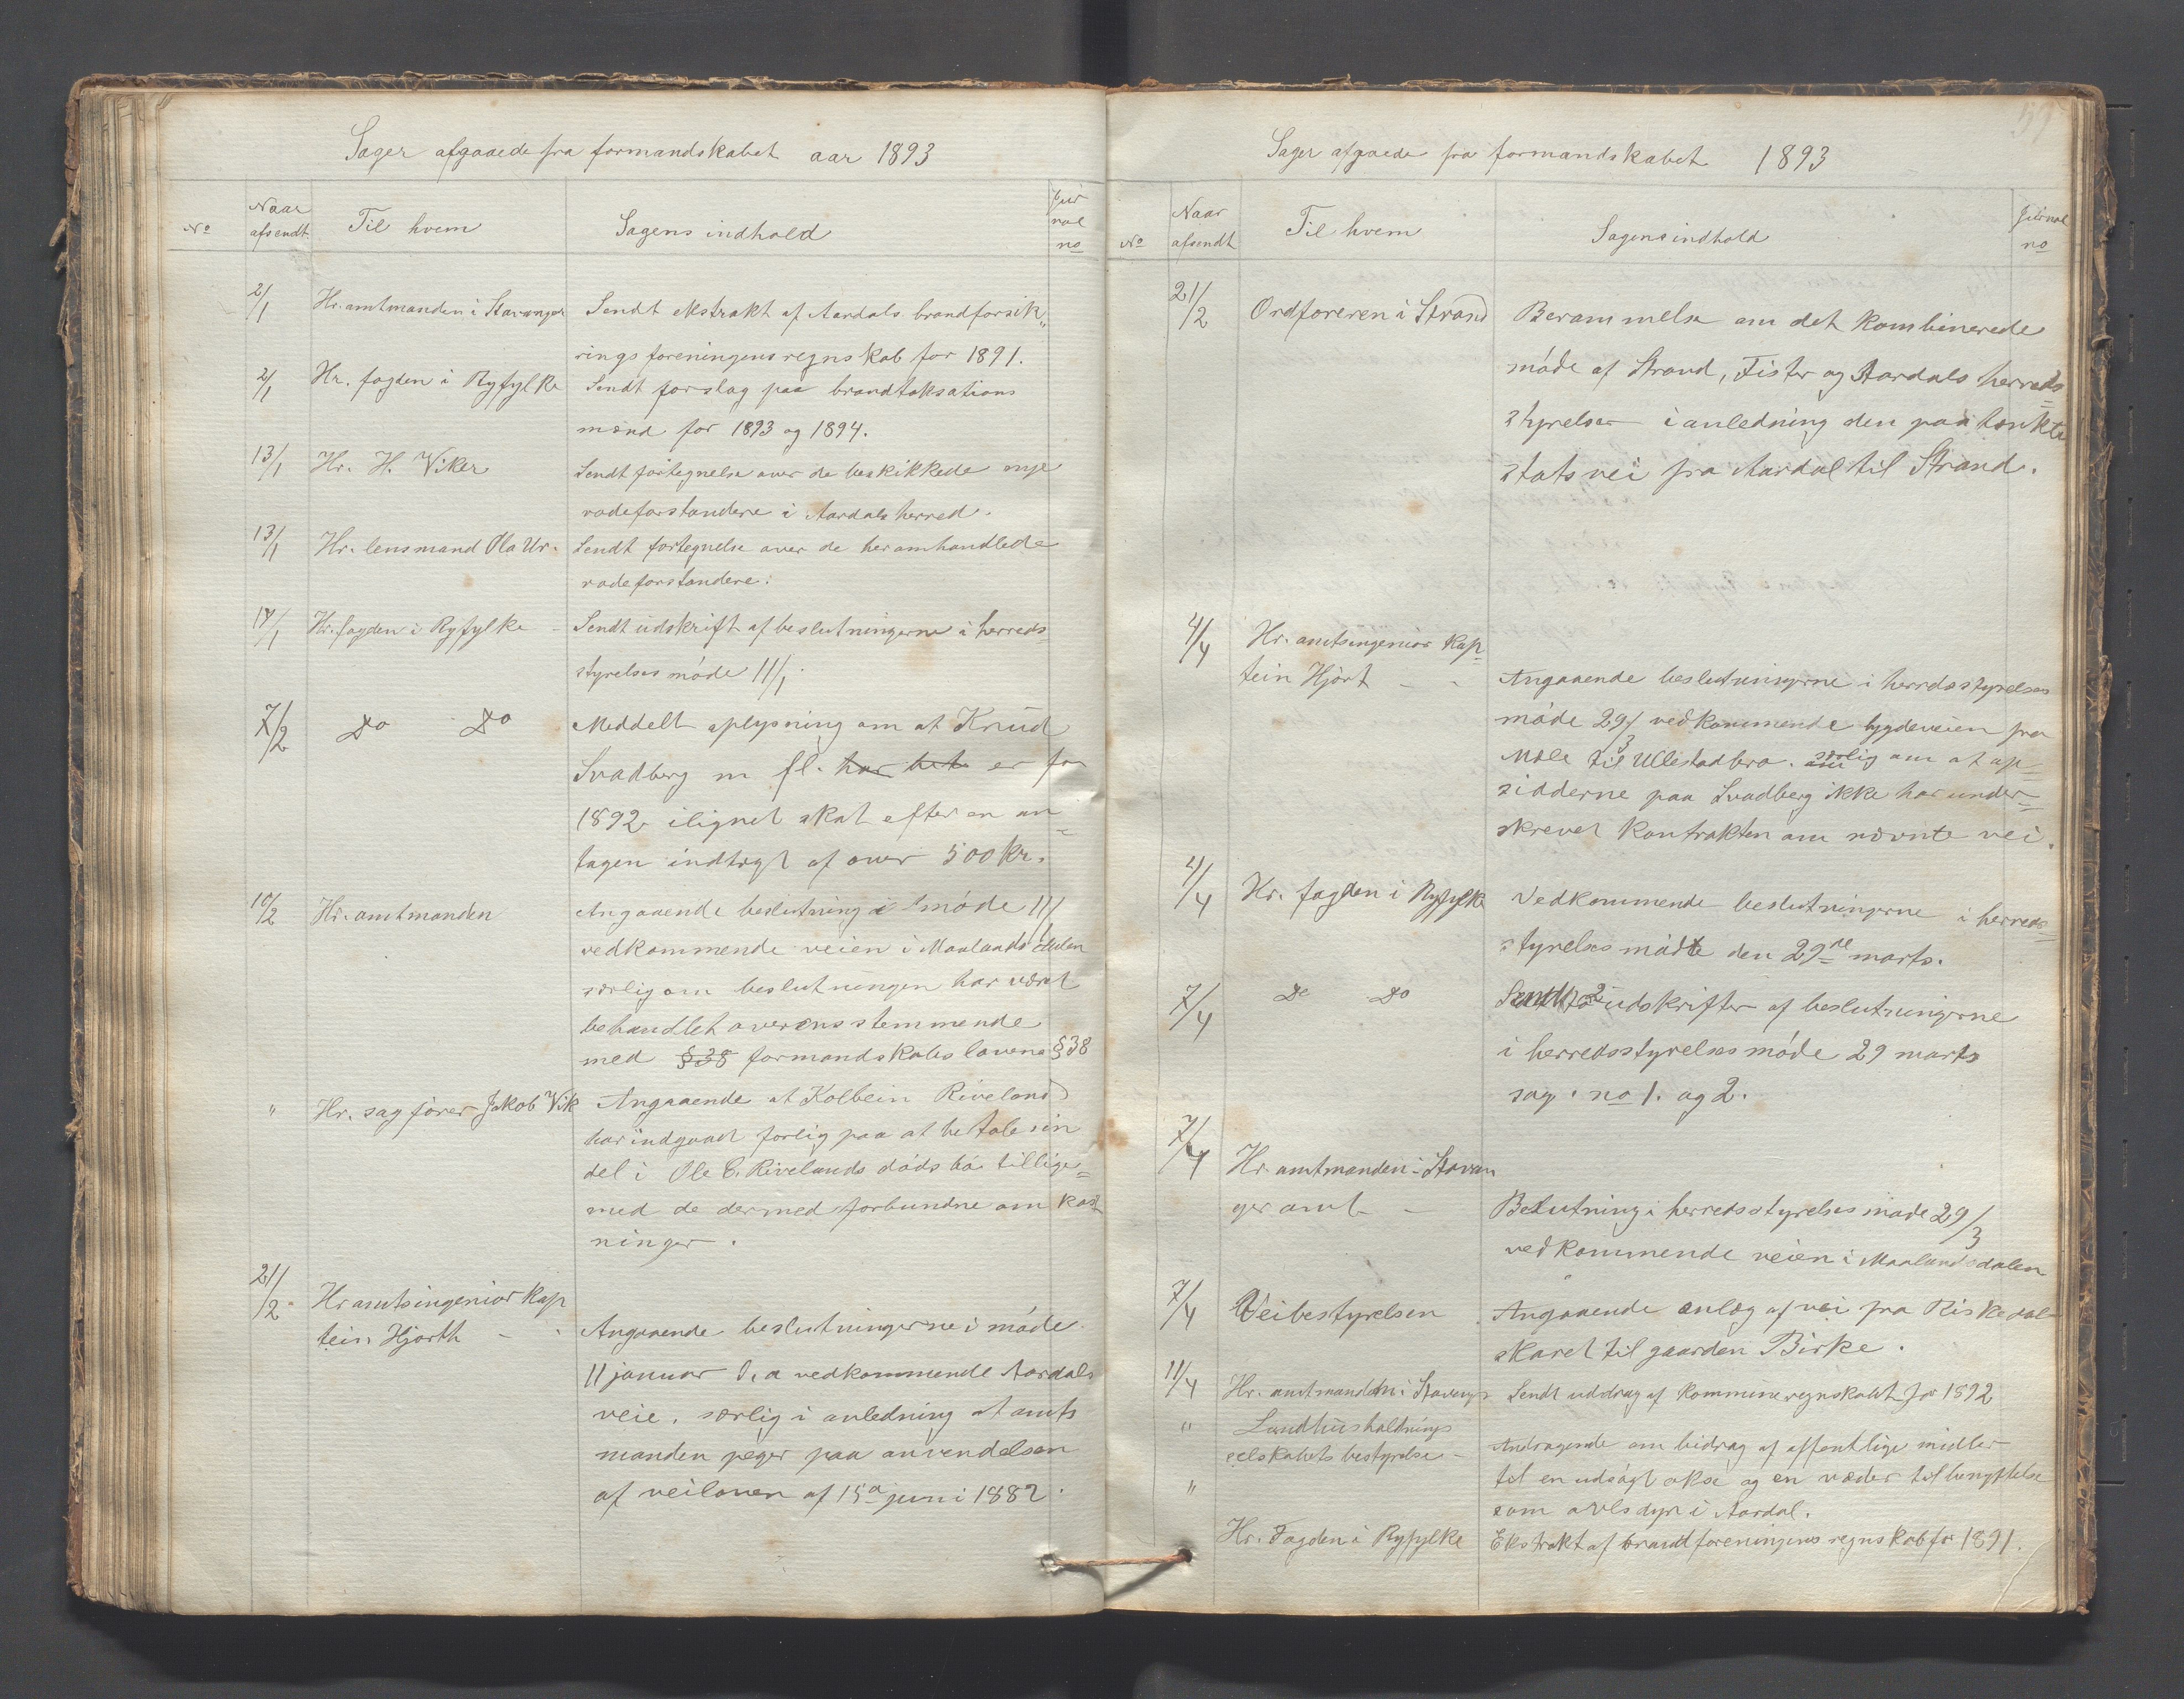 Sager afgaaede fra formandskabet aar 1893
No Naar afsendt Til hvem Sagens indhold Jur nal no
2/1 Hr. amtmanden i Stavanger Sendt ekstrakt af Aardals brandforsik„
ringsforeningens regnskab for 1891.
2/1 Hr. fogden i Ryfylke Sendt forslag paa brandtaksations
mænd for 1893 og 1894.
13/1 Hr. H. Viker Sendt fortegnelse over de beskikkede nye
rodeforstandere i Aardals herred.
13/1 Hr. lensmand Ola Ur. Sendt fortegnelse over de heromhandlede
rodeforstandere.
14/1 Hr. fogden i Ryfylke - Sendt udskrift af beslutningerne i herreds=
styrelses møde 11/1.
7/2 Do Do Meddelt oplysning om at Knud
Svadberg m fl. har bet er for
1892 ilignet skat efter en an=
tagen indtægt af over 500 kr.
10/2 Hr. amtmanden Angaaende beslutning i møde 11/1
vedkommende veien i Maalandsdalen
særlig om beslutningen har været
behandlet overensstemmende
med §38 formandskabslovens §38
" Hr. sagfører Jakob Vik Angaaende at Kolbein Riveland
har indgaaet forlig paa at betale sin
del i Ole E. Rivelands dødsbo tillige=
med de dermed forbundne omkost
ninger.
21/2 Hr amtsingeniør kap
tein Hjorth - - Angaaende beslutningerne i møde
11 januar d. a vedkommende Aardals
veie, særlig i anledning at amts
manden peger paa anvendelsen
af veiloven af 15de juni 1882.
59
Sager afgaaede fra formandskabet 1893
No Naar afsendt Til hvem Sagens indhold Jurnal no
21/2 Ordføreren i Strand Berammelse om det kombinerede
møde af Strand, Fister og Aardals herreds=
styrelser i anledning den paatænkte
statsvei fra Aardal til Strand.
4/4 Hr. amtsingeniør kap=
tein Hjort - - Angaaende beslutningerne i herredsstyrelses
møde 29/3 vedkommende bygdeveien fra
Mæle til Ullestadbro. særlig om at op=
sidderne paa Svadberg ikke har under=
skrevet kontrakten om nævnte vei.
4/4 Hr. fogden i Ryfylke Vedkommende beslutningerne i herreds=
styrelses møde den 29de marts.
7/4 Do Do Sendt 2 udskrifter af beslutningerne
i herredsstyrelses møde 29 marts
sag. no 1. og 2.
7/4 Hr amtmanden i Stavan
ger amt - Beslutning i herredsstyrelses møde 29/3
vedkommende veien i Maalandsdalen
7/4 Veibestyrelsen Angaaende anlæg af vei fra Riskedal
skaret til gaarden Birke.
11/4 Hr. amtmanden i Stavanger Sendt uddrag af kommuneregnskabet for 1892
" Landhusholdnings
selskabets bestyrelse - Andragende om bidrag af offentlige midler
" til en udsøgt okse og en væder til benyttelse
som avlsdyr i Aardal.
Hr. Fogden i Ryfylke Ekstrakt af brandforeningens regnskab for 1891.